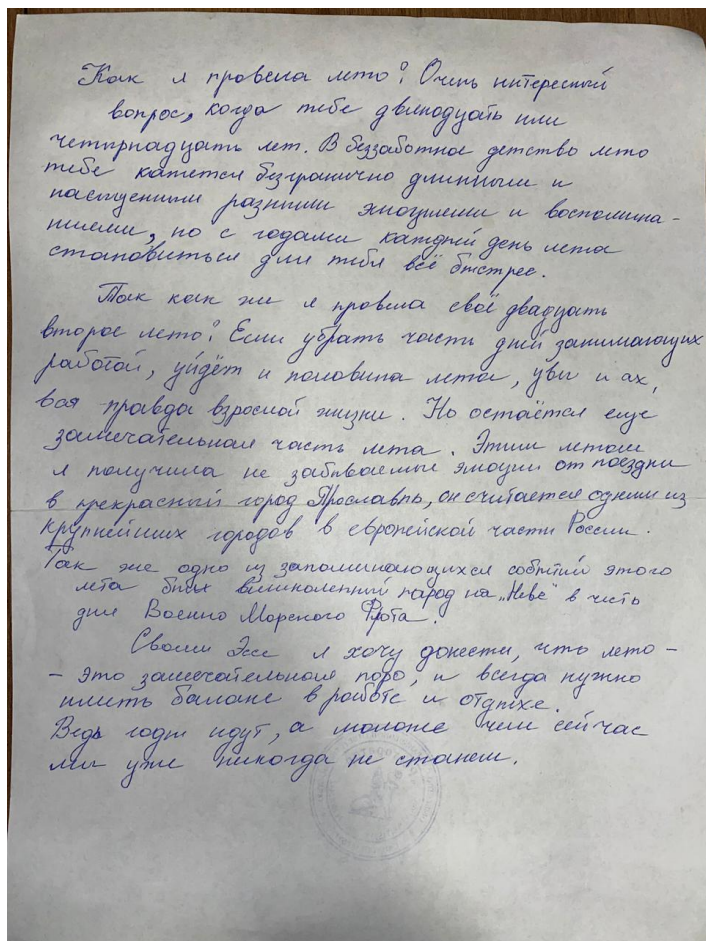 Как я провела лето? Очень интересный
вопрос, когда тебе двенадцать или
четырнадцать лет. В беззаботное детство лето
тебе кажется безгранично длинным и
насыщенным разными эмоциями и воспомина-
ниями, но с годами каждый день лета
становиться для тебя всё быстрее.
Так как же я провела своё двадцать
второе лето? Если убрать часть дней занимающих
работой, уйдёт и половина лета, увы и ах,
вся правда взрослой жизни. Но остаётся еще
замечательная часть лета. Этим летом
я получила не забываемые эмоции от поездки
в прекрасный город Ярославль, он считается одним из
крупнейших городов в европейской части России.
Так же одно из запоминающихся событий этого
лета был великолепный парад на „Неве" в честь
дня Военно Морского Флота.
Своим Эссе я хочу донести, что лето -
- это замечательная пора, и всегда нужно
иметь баланс в работе и отдыхе.
Ведь годы идут, а моложе чем сейчас
мы уже никогда не станем.